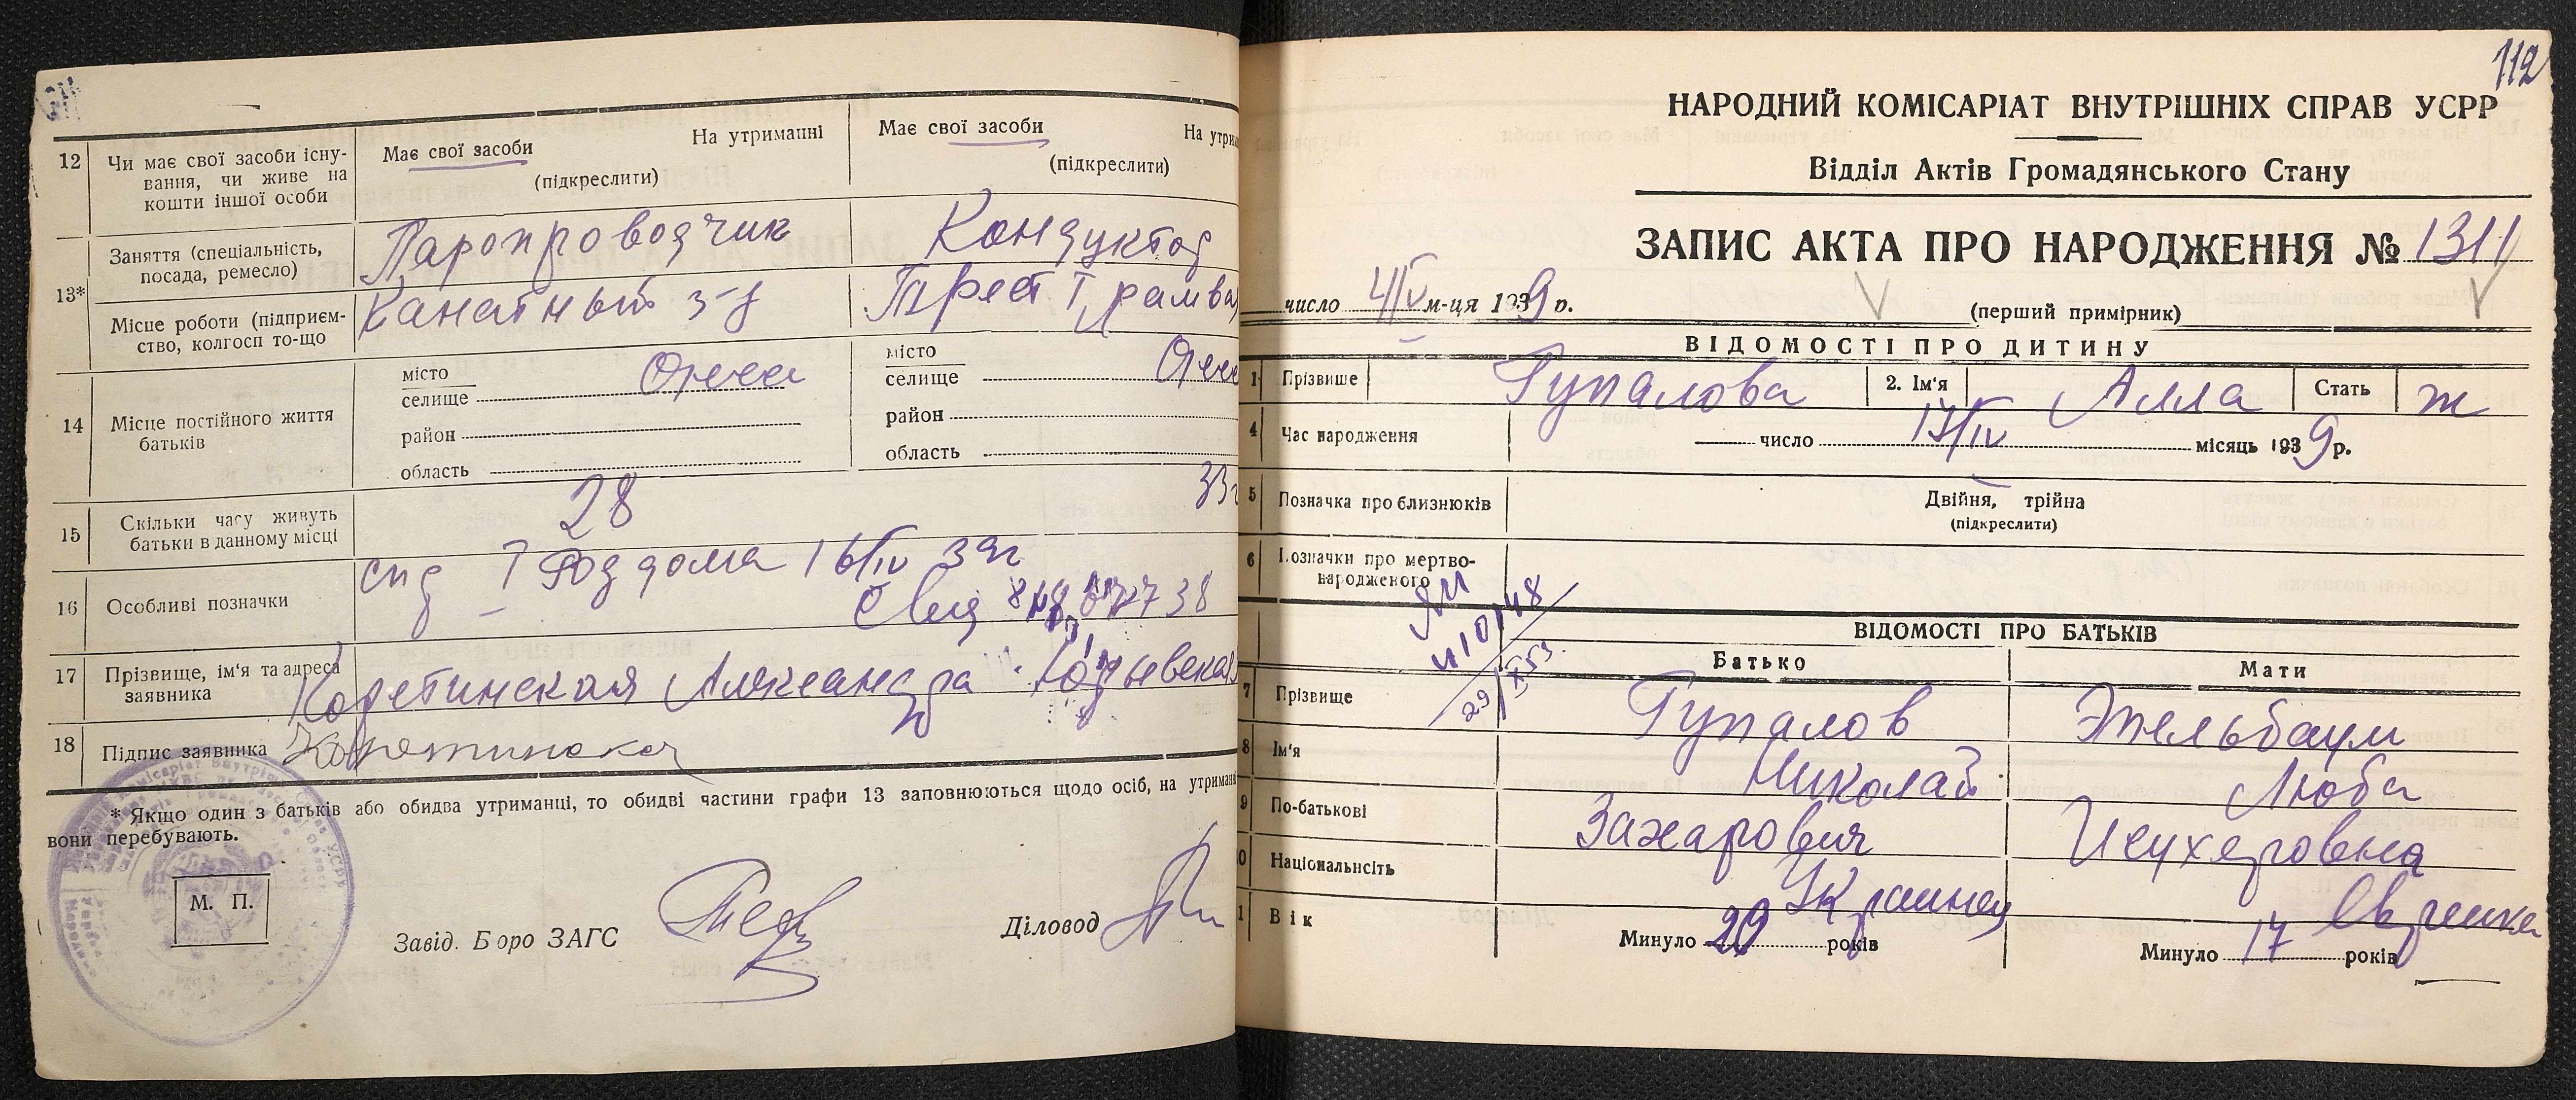 12
Чи має свої засоби існу-
вання, чи живе на
кошти іншої особи
Має свої засоби На утриманні
(підкреслити)
Має свої засоби На утри
(підкреслити)
13*
Заняття (спеціальність,
посада, ремесло)
Паропроводчик
Кондуктор
Місце роботи (підприєм-
ство, колгосп то-що
Канатный з-д
Трест Трамва
14
Місце постійного життя
батьків
місто
селище Одесса
район
область
місто
селище Одесс
район
область
15
Скільки часу живуть
батьки в данному місці
28
33г
16
Особливі позначки
спр 1 Роддома 16/IV 39г
17
Прізвище, ім'я та адреса
заявника
Коретинская Александра
18
Підпис заявника
Коретинская
* Якщо один з батьків або обидва утриманці, то обидві частини графи 13 заповнюються щодо осіб, на утриман
вони перебувають.
М. П.
Завід. Бюро ЗАГС
Діловод
112
НАРОДНИЙ КОМІСАРІАТ ВНУТРІШНІХ СПРАВ УСРР
Відділ Актів Громадянського Стану
ЗАПИС АКТА ПРО НАРОДЖЕННЯ № 1311
число 4/V м-ця 1939 р.
(перший примірник)
ВІДОМОСТІ ПРО ДИТИНУ
1 Прізвище Гупалова 2. Ім'я Алла Стать ж
4 Час народження число 17/IV місяць 1939 р.
5 Позначка про близнюків Двійня, трійна
(підкреслити)
6 Позначки про мертво-
народженого
ВІДОМОСТІ ПРО БАТЬКІВ
Батько Мати
7 Прізвище Гупалов Эпельбаум
8 Ім'я Николай Люба
9 По-батькові Захарович
10 Національність Украинец Еврейка
11 Вік Минуло 29 років Минуло 17 років